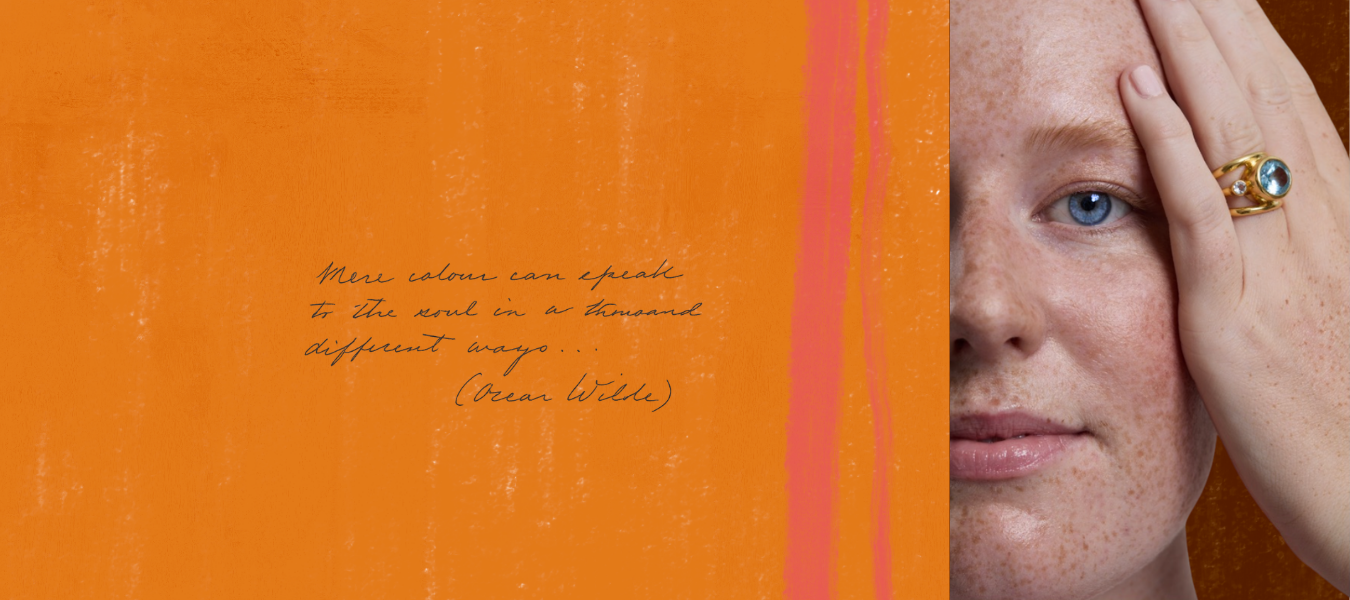 Mere colour can speak
to the soul in a thousand
different ways...
(Oscar Wilde)